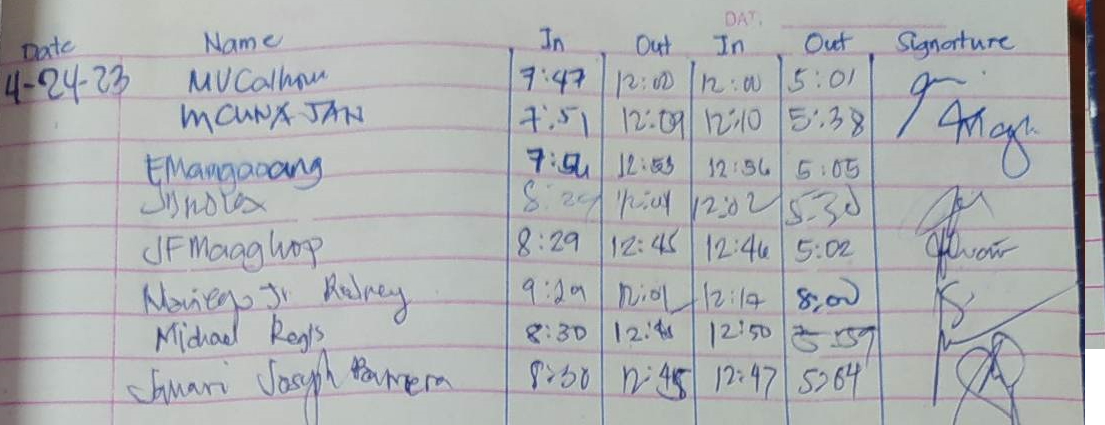 DAT.
Date Name In Out In Out Signature
4-24-23 MVCalhoun 7:47 12:00 12:00 5:01
MCUNA JAN 7:51 12:09 12:10 5:38
EMangaoang 7:54 12:53 12:56 5:05
8:29 12:01 12:02 5:30
JFMaaghop 8:29 12:45 12:46 5:02
Jr. Rodney 9:29 12:01 12:17 8:00
Michael Regis 8:30 12:50 5:59
Joseph Barrera 8:30 12:45 12:47 5:04